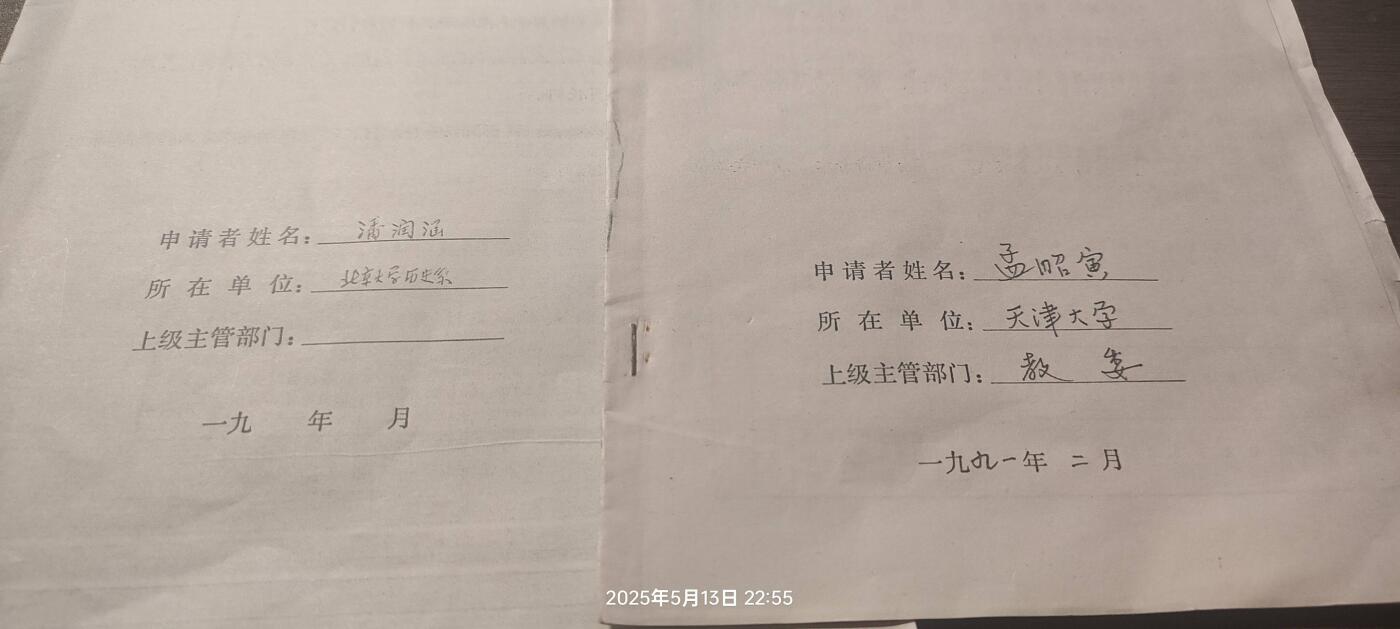 申请者姓名：潘润涵
所在单位：北京大学历史系
上级主管部门：
一九 年 月
申请者姓名：孟昭寅
所在单位：天津大学
上级主管部门：教委
一九九一年 二月
2025年5月13日 22:55